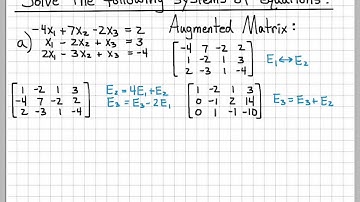 Solve the following systems of equations:
a) -4x₁ + 7x₂ - 2x₃ = 2
x₁ - 2x₂ + x₃ = 3
2x₁ - 3x₂ + x₃ = -4
Augmented Matrix:
[-4 7 -2 2]
[1 -2 1 3]
[2 -3 1 -4]
E₁ ↔ E₂
[1 -2 1 3]
[-4 7 -2 2]
[2 -3 1 -4]
E₂ = 4E₁ + E₂
E₃ = E₃ - 2E₁
[1 -2 1 3]
[0 -1 2 14]
[0 1 -1 -10]
E₃ = E₃ + E₂